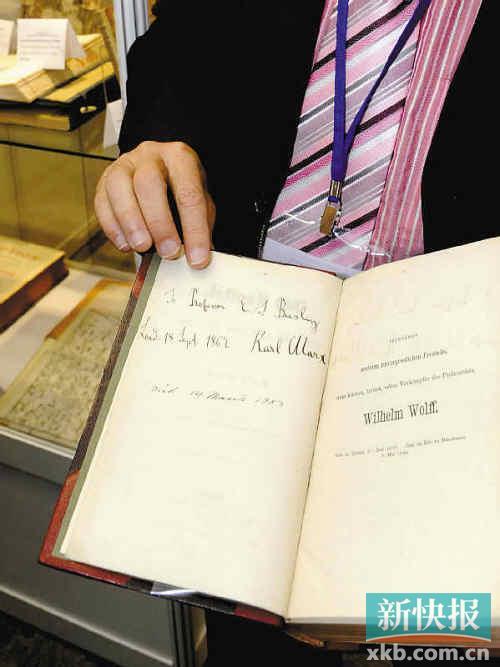 To Professor E S Beesly
Lond. 18 Sept 1867 Karl Marx
Died 14 March 1883
Gewidmet
meinem unvergesslichen Freunde,
dem kühnen, treuen, edlen Vorkämpfer des Proletariats,
Wilhelm Wolff.
Mai 1864.
新快报
xkb.com.cn